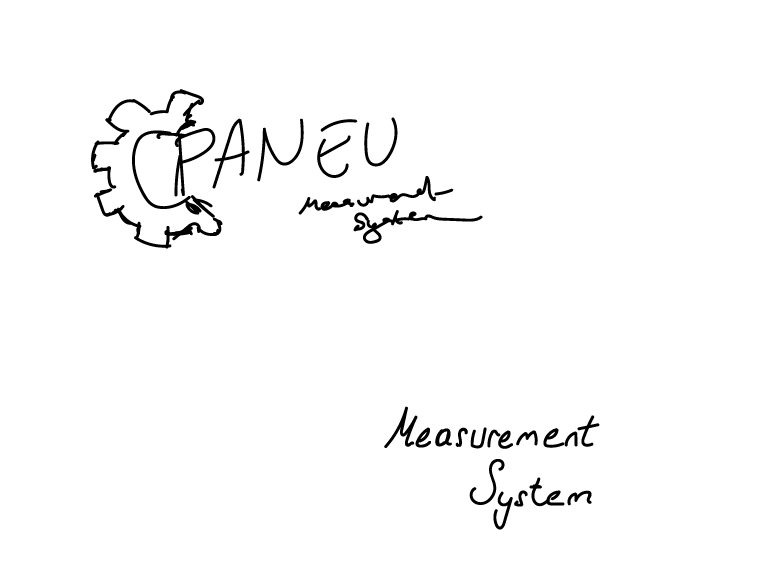 PANEU
Measurement
System
Measurement
System